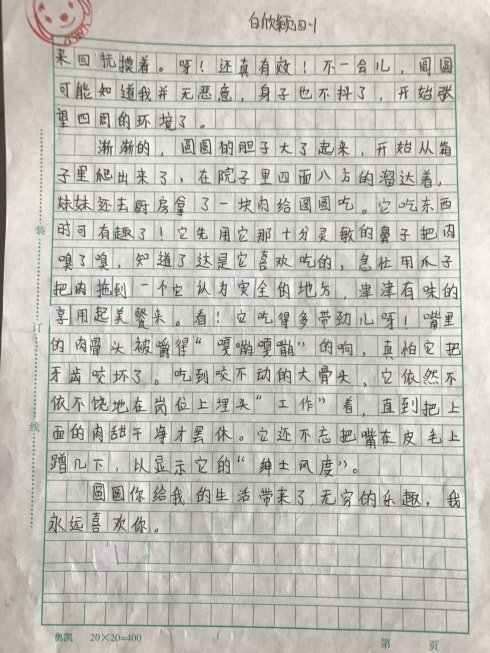 白欣颖四-1
来回抚摸着。呀！还真有效！不一会儿，圆圆
可能知道我并无恶意，身子也不抖了，开始张
望四周的环境了。
渐渐的，圆圆的胆子大了起来，开始从箱
子里爬出来了，在院子里四面八方的溜达着，
妹妹还去厨房拿了一块肉给圆圆吃。它吃东西
时可有趣了！它先用它那十分灵敏的鼻子把肉
嗅了嗅，知道了这是它喜欢吃的，急忙用爪子
把肉拖到一个它认为安全的地方，津津有味的
享用起美餐来。看！它吃得多带劲儿呀！嘴里
的肉骨头被嚼得“嘎嘣嘎嘣”的响，真怕它把
牙齿咬坏了。吃到咬不动的大骨头，它依然不
依不饶地在岗位上埋头“工作”着，直到把上
面的肉甜干净才罢休。它还不忘把嘴在皮毛上
蹭几下，以显示它的“绅士风度”。
圆圆你给我的生活带来了无穷的乐趣，我
永远喜欢你。
装
订
线
奥凯 20×20=400 第 页